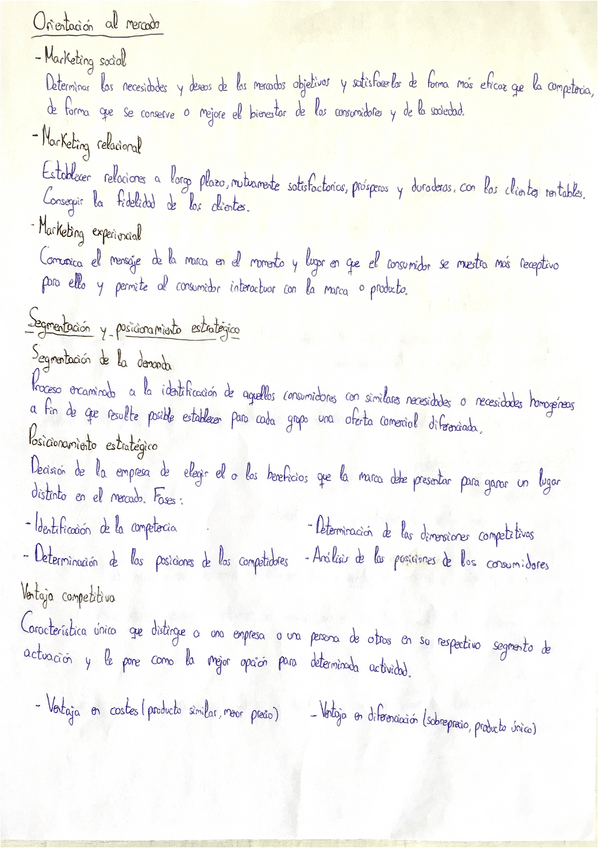 Orientación al mercado
- Marketing social
Determinar las necesidades y deseos de los mercados objetivos y satisfacerlos de forma más eficaz que la competencia,
de forma que se conserve o mejore el bienestar de los consumidores y de la sociedad.
- Marketing relacional
Establecer relaciones a largo plazo, mutuamente satisfactorias, prósperas y duraderas, con los clientes rentables.
Conseguir la fidelidad de los clientes.
- Marketing experiencial
Comunica el mensaje de la marca en el momento y lugar en que el consumidor se muestra más receptivo
para ello y permite al consumidor interactuar con la marca o producto.
Segmentación y posicionamiento estratégico
Segmentación de la demanda
Proceso encaminado a la identificación de aquellos consumidores con similares necesidades o necesidades homogéneas
a fin de que resulte posible establecer para cada grupo una oferta comercial diferenciada.
Posicionamiento estratégico
Decisión de la empresa de elegir el o los beneficios que la marca debe presentar para ganar un lugar
distinto en el mercado. Fases:
- Identificación de la competencia - Determinación de las dimensiones competitivas
- Determinación de las posiciones de los competidores - Análisis de las posiciones de los consumidores
Ventaja competitiva
Característica única que distingue a una empresa o una persona de otras en su respectivo segmento de
actuación y le pone como la mejor opción para determinada actividad.
- Ventaja en costes (producto similar, menor precio) - Ventaja en diferenciación (sobreprecio, producto único)